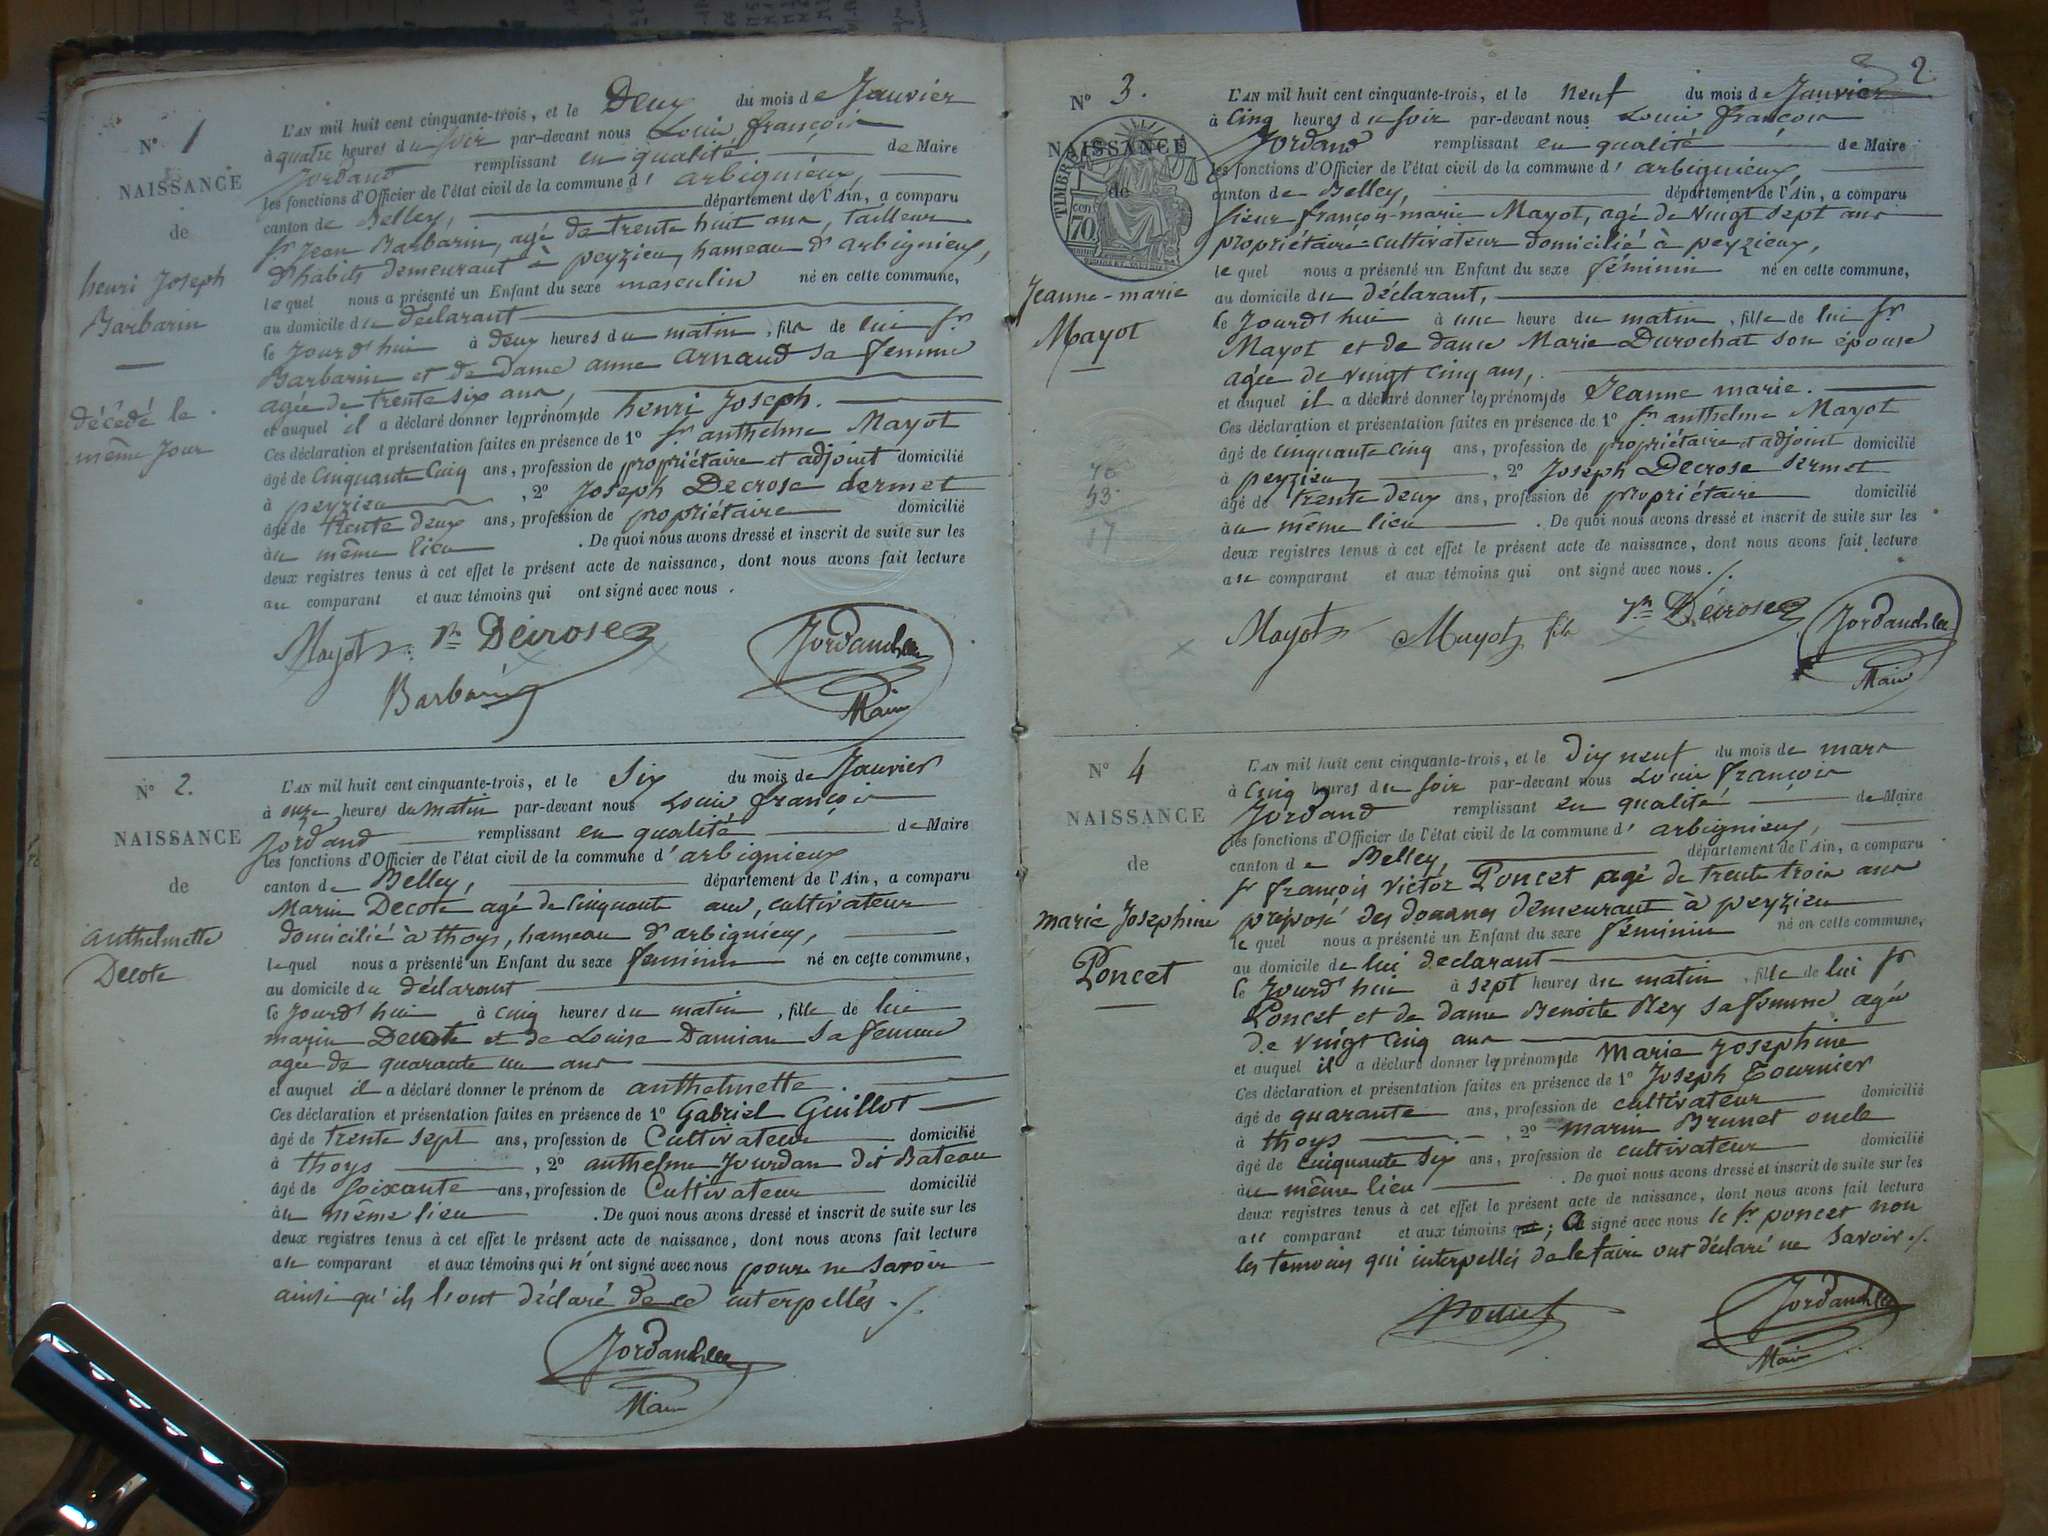 N° 1
NAISSANCE
de
henri Joseph
Barbarin
décédé le
même jour
L'AN mil huit cent cinquante-trois, et le Deux du mois de Janvier
à quatre heures du soir par-devant nous Louis françois
Jordand remplissant en qualité de Maire
les fonctions d'Officier de l'état civil de la commune d' arbignieux,
canton de Belley, département de l'Ain, a comparu
Sr Jean Barbarin, agé de trente huit ans, tailleur
d'habits demeurant à peyzieu, hameau d'arbignieux,
lequel nous a présenté un Enfant du sexe masculin né en cette commune,
au domicile du déclarant
le Jourd'hui à deux heures du matin, fils de lui Sr
Barbarin et de Dame anne arnaud sa femme
agée de trente six ans,
et auquel il a déclaré donner les prénoms de henri Joseph.
Ces déclaration et présentation faites en présence de 1° Sr anthelme Mayot
âgé de Cinquante Cinq ans, profession de propriétaire et adjoint domicilié
à peyzieu, 2° Joseph Decrose dermet
âgé de trente deux ans, profession de propriétaire domicilié
au même lieu. De quoi nous avons dressé et inscrit de suite sur les
deux registres tenus à cet effet le présent acte de naissance, dont nous avons fait lecture
au comparant et aux témoins qui ont signé avec nous.
Mayot Jh Décrose Jordand
Barbarin Maire
N° 2.
NAISSANCE
de
anthelmette
Decote
L'AN mil huit cent cinquante-trois, et le Six du mois de Janvier
à onze heures du matin par-devant nous Louis françois
Jordand remplissant en qualité de Maire
les fonctions d'Officier de l'état civil de la commune d' arbignieux
canton de Belley, département de l'Ain, a comparu
Marin Decote agé de Cinquante ans, cultivateur
domicilié à thoys, hameau d'arbignieux,
lequel nous a présenté un Enfant du sexe feminin né en cette commune,
au domicile du déclarant
le Jourd'hui à cinq heures du matin, fille de lui
marin Decote et de Louise Damian sa femme
agée de quarante un ans
et auquel il a déclaré donner le prénom de anthelmette.
Ces déclaration et présentation faites en présence de 1° Gabriel Guillot
âgé de trente sept ans, profession de Cultivateur domicilié
à thoys, 2° anthelme Jourdan dit Bateau
âgé de soixante ans, profession de Cultivateur domicilié
au même lieu. De quoi nous avons dressé et inscrit de suite sur les
deux registres tenus à cet effet le présent acte de naissance, dont nous avons fait lecture
au comparant et aux témoins qui n'ont signé avec nous pour ne savoir
ainsi qu'ils l'ont déclaré de ce interpellés ./.
Jordand
Maire
2.
N° 3.
NAISSANCE
de
TIMBRE
70
Jeanne-marie
Mayot
L'AN mil huit cent cinquante-trois, et le neuf du mois de Janvier
à Cinq heures du soir par-devant nous Louis françois
Jordand remplissant en qualité de Maire
les fonctions d'Officier de l'état civil de la commune d' arbignieux,
canton de Belley, département de l'Ain, a comparu
sieur françois-marie Mayot, agé de vingt sept ans
propriétaire-cultivateur domicilié à peyzieux,
lequel nous a présenté un Enfant du sexe féminin né en cette commune,
au domicile du déclarant,
le Jourd'hui à une heure du matin, fille de lui Sr
Mayot et de dame Marie Durochat son épouse
agée de vingt cinq ans,
et auquel il a déclaré donner les prénoms de Jeanne marie.
Ces déclaration et présentation faites en présence de 1° Sr anthelme Mayot
âgé de cinquante cinq ans, profession de propriétaire et adjoint domicilié
à peyzieu, 2° Joseph Decrose dermet
âgé de trente deux ans, profession de propriétaire domicilié
au même lieu. De quoi nous avons dressé et inscrit de suite sur les
deux registres tenus à cet effet le présent acte de naissance, dont nous avons fait lecture
au comparant et aux témoins qui ont signé avec nous ./.
Mayot Mayot fils Jh Décrose Jordand
Maire
N° 4
NAISSANCE
de
marie Josephine
Poncet
L'AN mil huit cent cinquante-trois, et le dix neuf du mois de mars
à Cinq heures du soir par-devant nous Louis françois
Jordand remplissant en qualité de Maire
les fonctions d'Officier de l'état civil de la commune d' arbignieux,
canton de Belley, département de l'Ain, a comparu
Sr françois victor Poncet agé de trente trois ans
préposé des douanes demeurant à peyzieu
lequel nous a présenté un Enfant du sexe féminin né en cette commune,
au domicile de lui declarant
le Jourd'hui à sept heures du matin, fille de lui Sr
Poncet et de dame Benoite Rey sa femme agée
de vingt cinq ans
et auquel il a déclaré donner les prénoms de Marie Josephine
Ces déclaration et présentation faites en présence de 1° Joseph Tournier
âgé de quarante ans, profession de cultivateur domicilié
à thoys, 2° marin Brunet oncle
âgé de cinquante six ans, profession de cultivateur domicilié
au même lieu. De quoi nous avons dressé et inscrit de suite sur les
deux registres tenus à cet effet le présent acte de naissance, dont nous avons fait lecture
au comparant et aux témoins qui; a signé avec nous le Sr poncet non
les temoins qui interpellés de le faire ont déclaré ne savoir ./.
Poncet Jordand
Maire